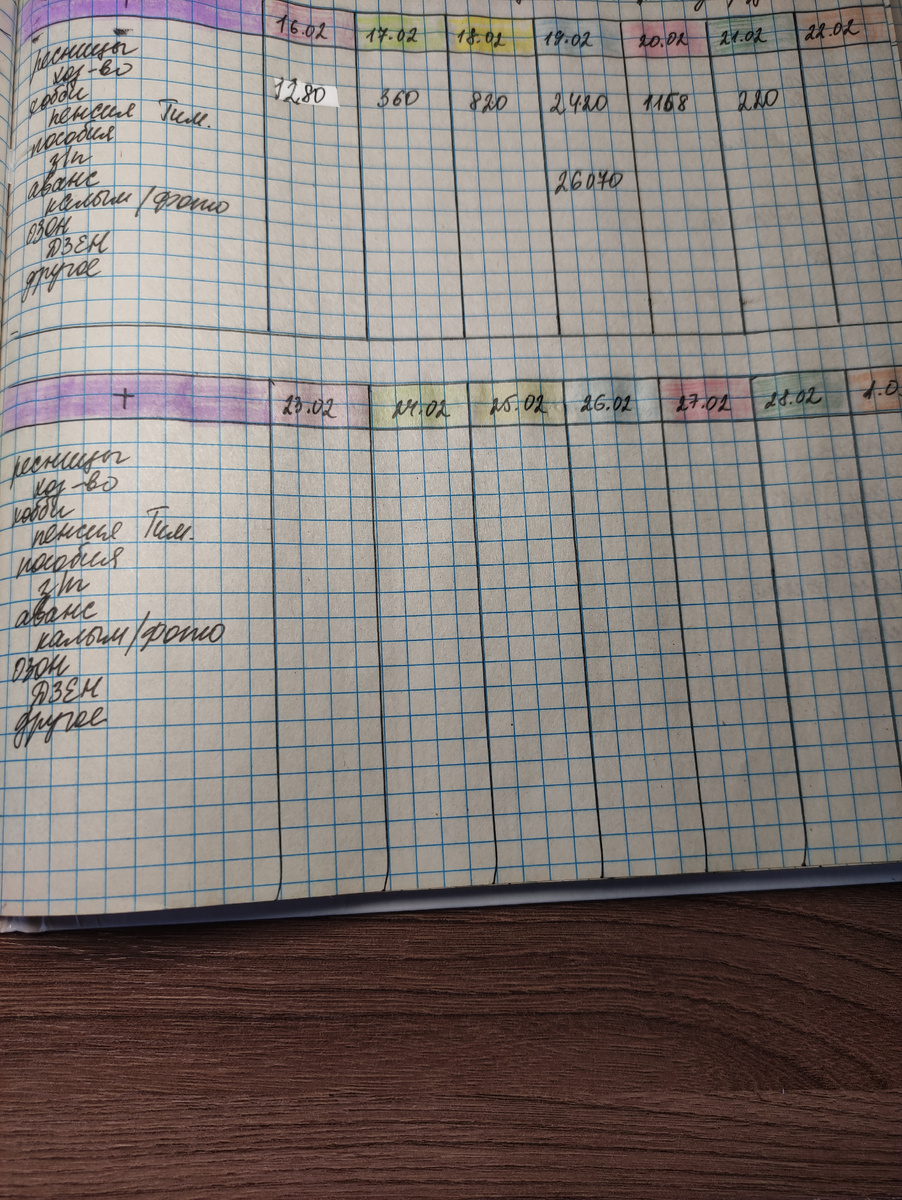 + 16.02 17.02 18.02 19.02 20.02 21.02 22.02
ресницы
хоз-во
хобби 1280 360 820 2420 1168 220
пенсия Тим.
пособия
з/п
аванс 26070
калым/фото
озон
ДЗЕН
другое
+ 23.02 24.02 25.02 26.02 27.02 28.02
ресницы
хоз-во
хобби
пенсия Тим.
пособия
з/п
аванс
калым/фото
озон
ДЗЕН
другое